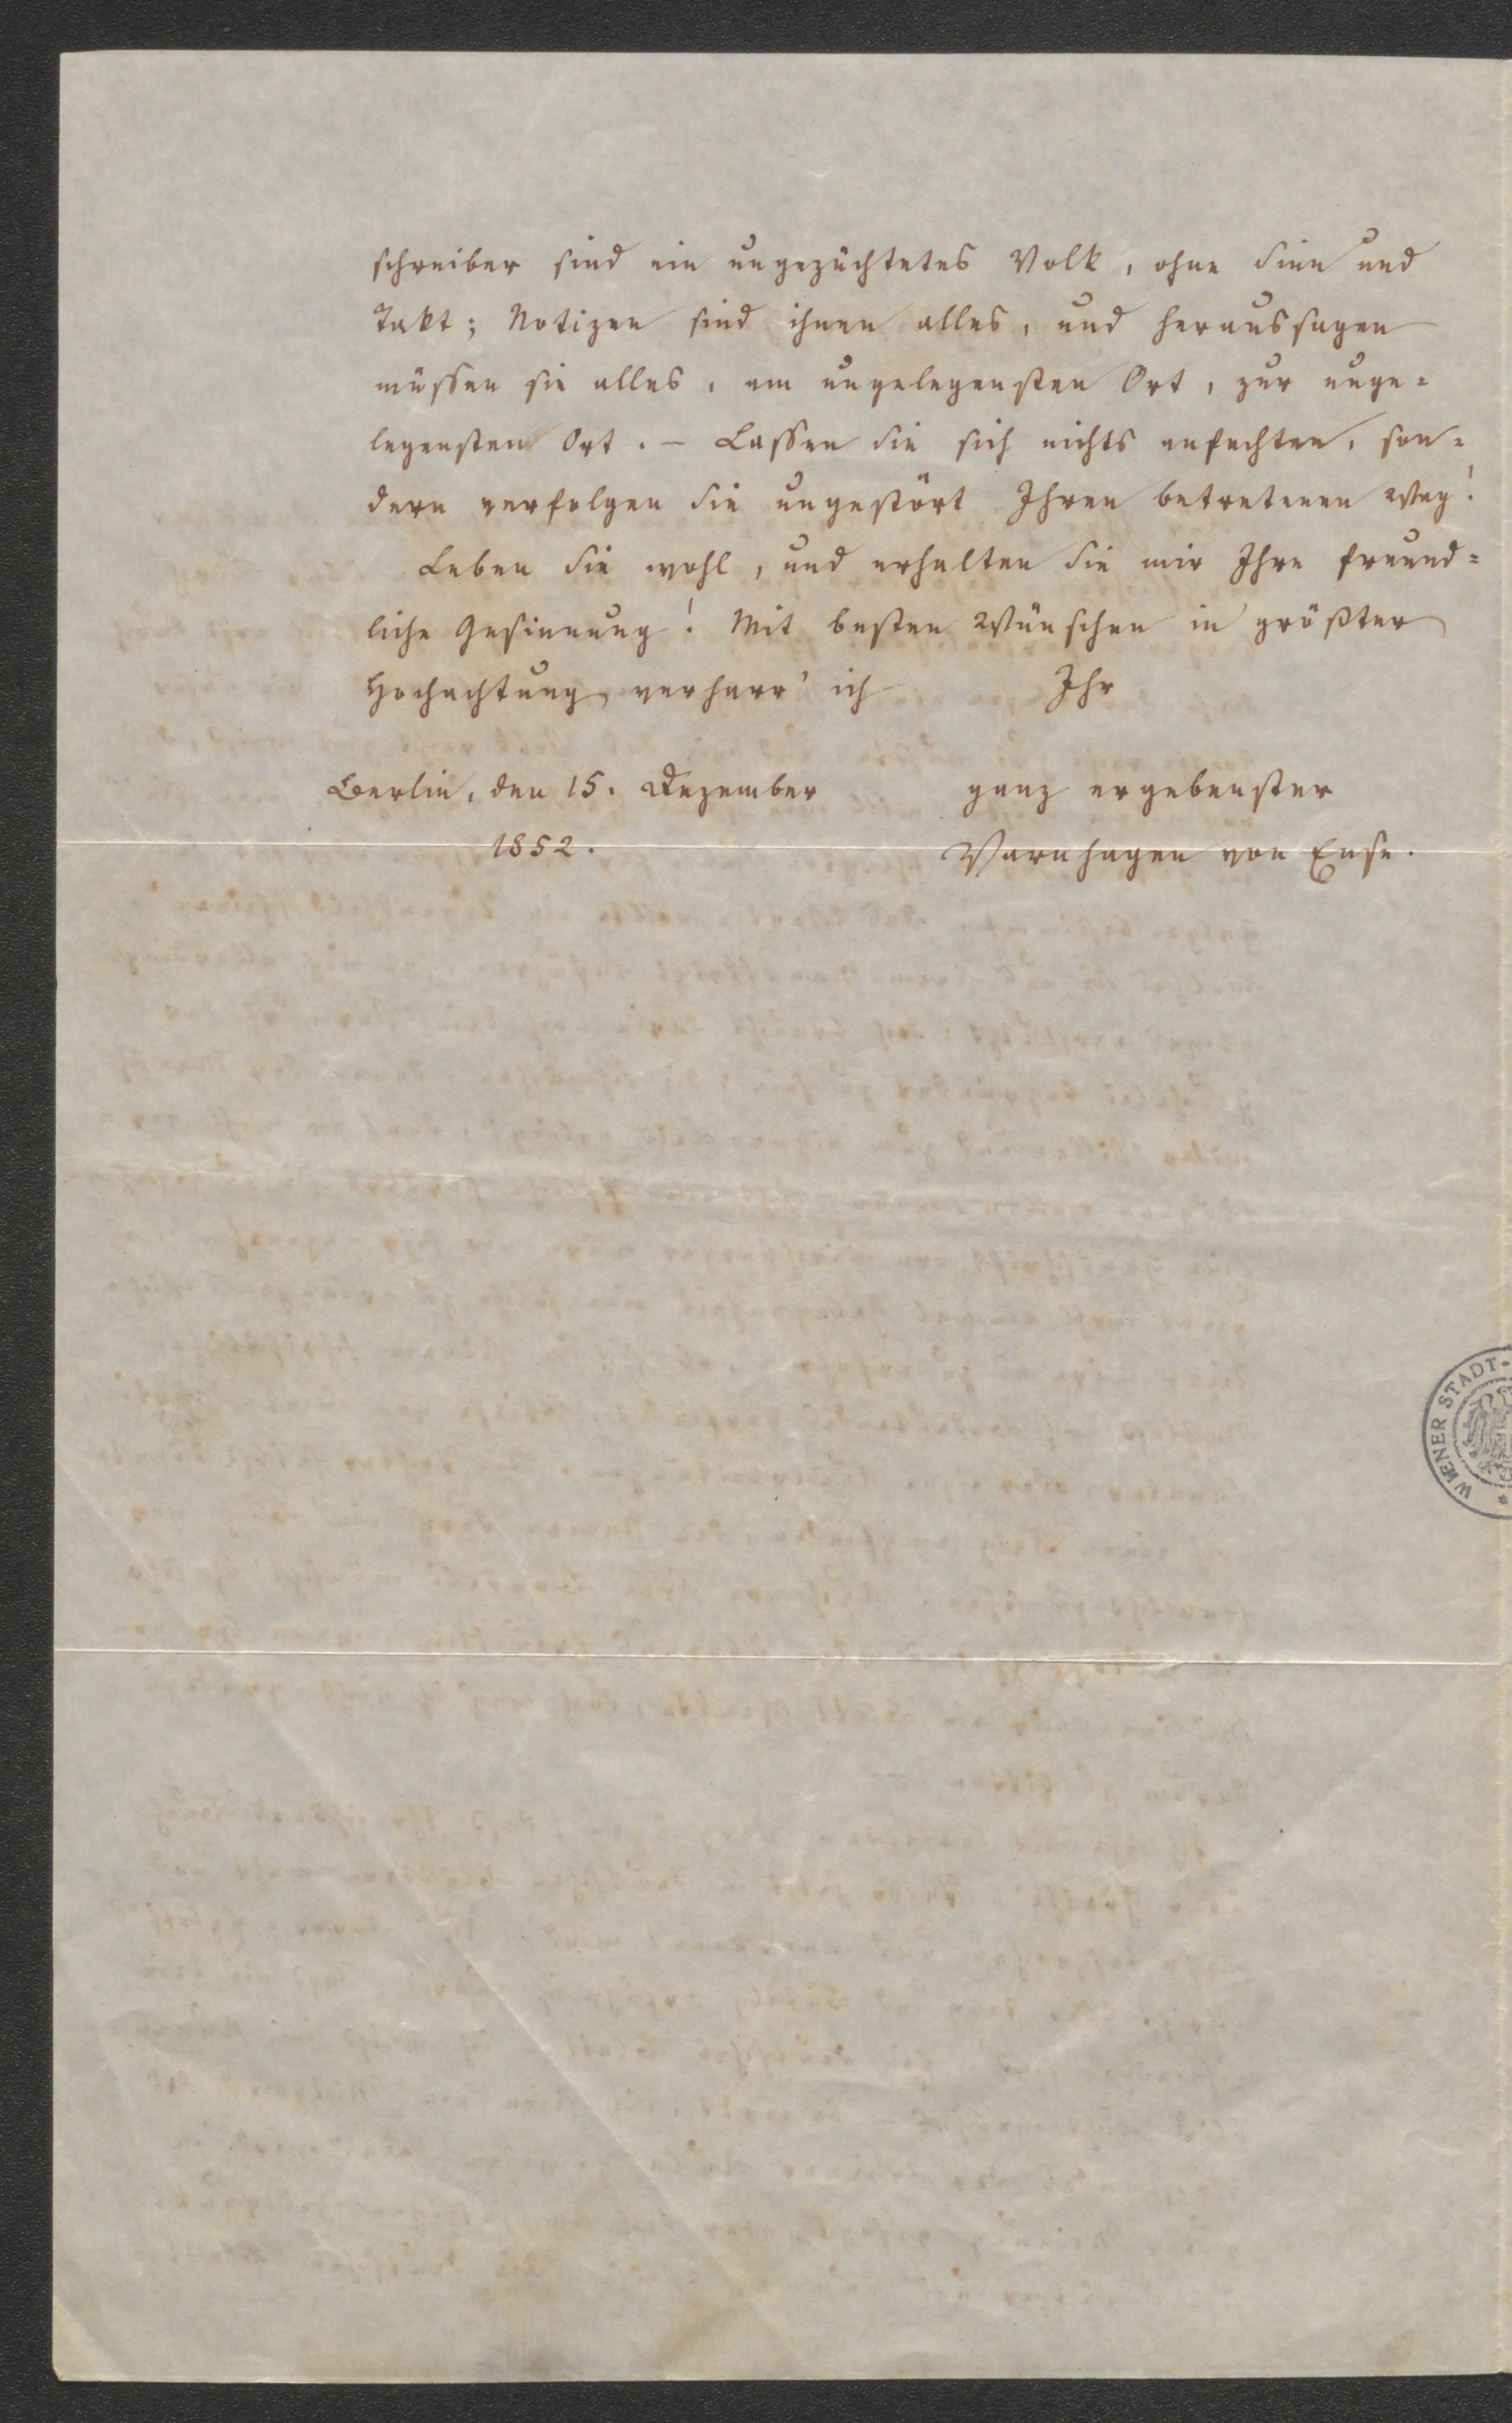 schreiber sind ein ungezüchtetes Volk, ohne Sinn und
Takt; Notizen sind ihnen alles, und heraussagen
müssen sie alles, am ungelegensten Ort, zur unge=
legensten Ort. – Lassen Sie sich nichts anfechten, son=
dern verfolgen Sie ungestört Ihren betretenen Weg!
Leben Sie wohl, und erhalten Sie mir Ihre freund=
liche Gesinnung! Mit besten Wünschen in größter
Hochachtung verharr' ich Ihr
Berlin, den 15. Dezember ganz ergebenster
1852. Varnhagen von Ense.
WIENER STADT-